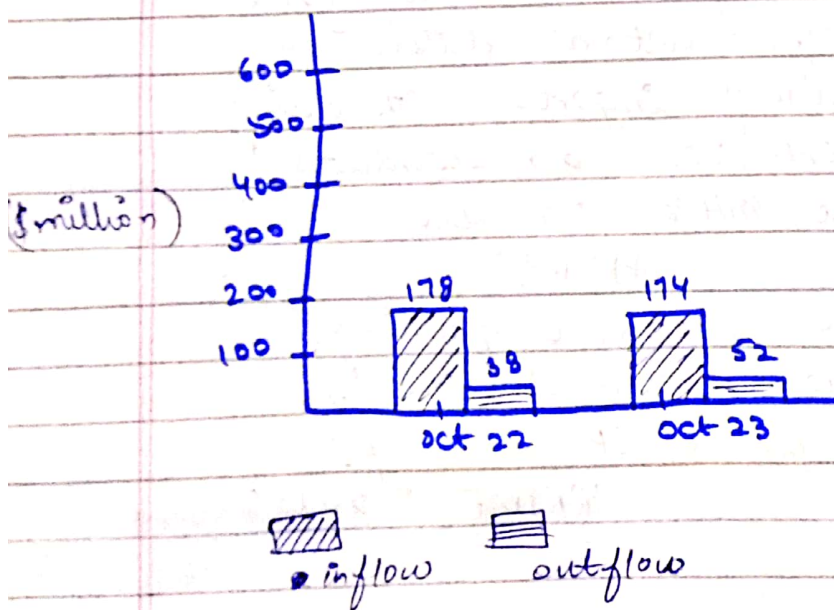 600
500
400
($ million)
300
200
100
178
38
174
52
oct 22
oct 23
inflow
outflow